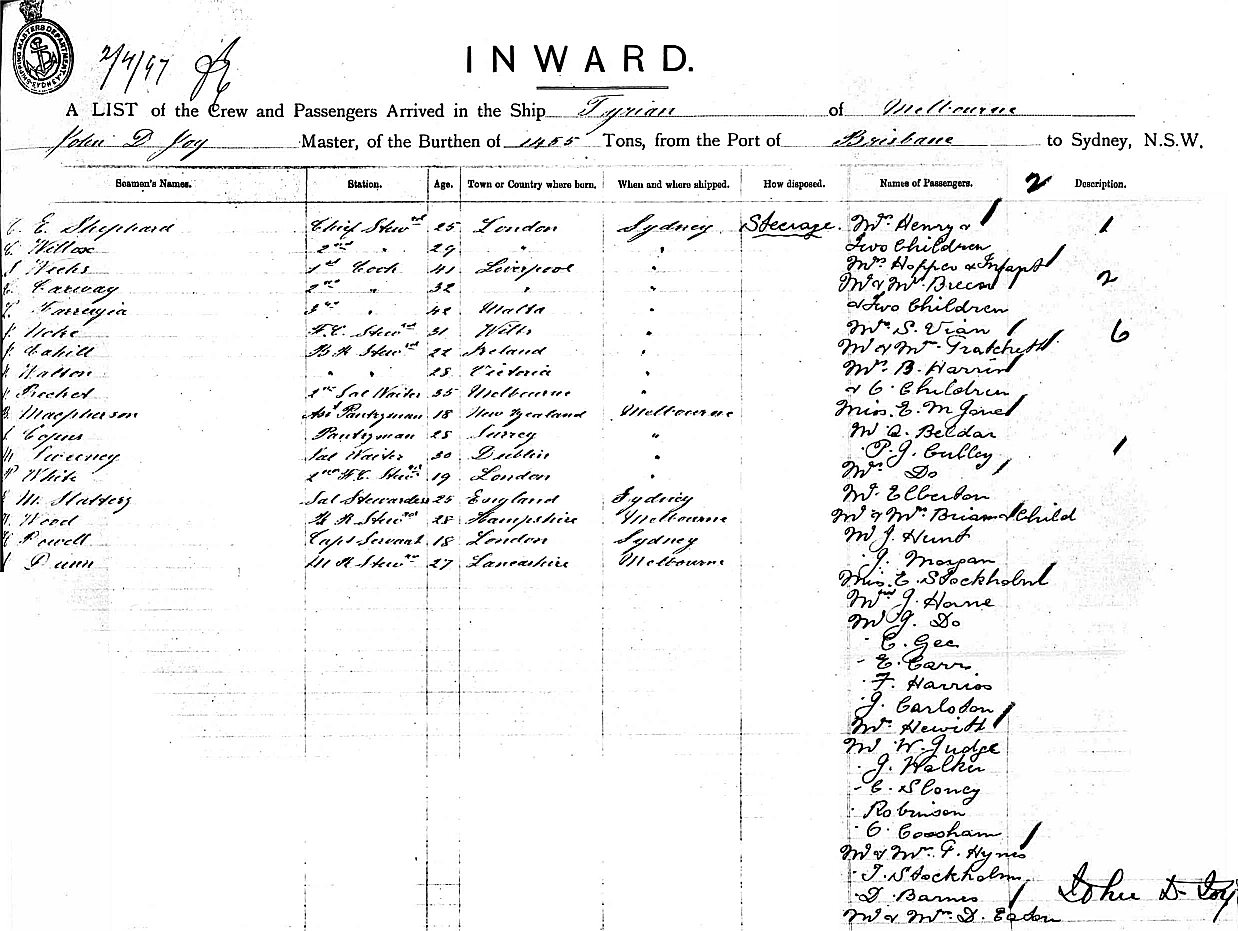 SHIPPING MASTERS DEPARTMENT SYDNEY
2/4/97
INWARD.
A LIST of the Crew and Passengers Arrived in the Ship Tyrian of Melbourne
John D Joy Master, of the Burthen of 1455 Tons, from the Port of Brisbane to Sydney, N.S.W.
Seamen's Names. Station. Age. Town or Country where born. When and where shipped. How disposed. Names of Passengers. 2 Description.
E. Shephard Chief Stewrd 25 London Sydney Steerage. Mrs Henry & 1
Willox 2nd " 29 " " Two Children
Weeks 1st Cook 41 Liverpool " Mrs Hopper & Infant
Farway 2nd " 32 " " Mr & Mrs Breen 2
Farrugia 3rd " 42 Malta " & Two Children
Uche F.C. Stewrd 31 Wilts " Mrs S. Vian 6
Cahill B.R Stewrd 22 Ireland " Mr & Mrs Gratchett
Walton " " 28 Victoria " Mrs B. Harrin
Prechet 2nd Sal Waiter 35 Melbourne " & 6 Children
Macpherson Asst Pantryman 18 New Zealand Melbourne Miss E. M Jones
Copus Pantryman 25 Surrey " Mr A. Beldar
Sweeney Sal Waiter 30 Dublin " " P. J. Culley 1
White 2nd F.C. Stewrd 19 London " Mrs Do
M. Slattery Sal Stewardess 25 England Sydney Mr Elberton
Wood Stewrd 28 Hampshire Melbourne Mr & Mrs Brian & Child
Powell Capt Servant 18 London Sydney Mr J. Hunt
Dunn M R Stewrd 27 Lancashire Melbourne " J. Morgan
Miss E. Stockholm
J. Horne
Mr J. Do
" C. Gee
" E. Carr
" F. Harrios
" J. Carlston
Mrs Hewitt
Mr W. Judge
" J. Walker
" C. Sloney
" Robinson
" C. Coosham
Mr & Mrs F. Hynes
" T. Stockholm
" D. Barnes John D Joy
Mr & Mrs D. Eaton